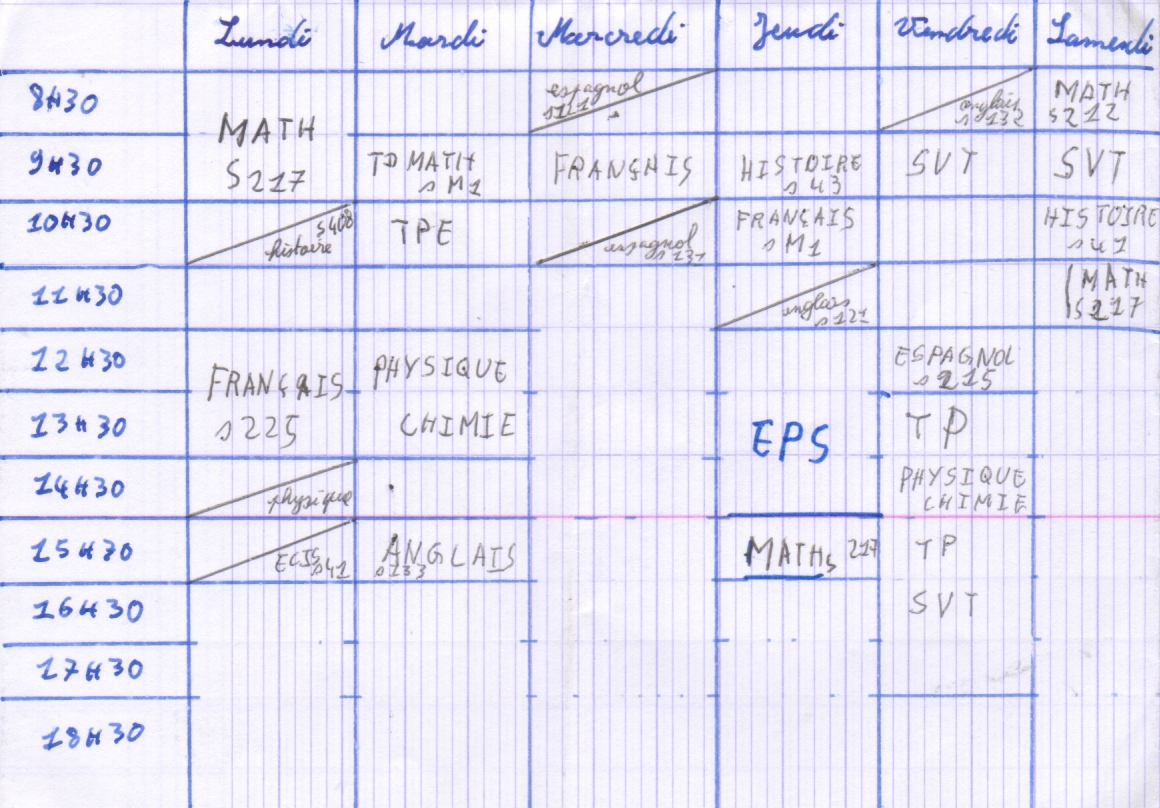 Lundi Mardi Marcredi Jeudi Vendredi Samedi
8H30
espagnol
s121
anglais
s132
MATH
s212
MATH
S217
9H30
TD MATH
s M1
FRANÇAIS
HISTOIRE
s 43
SVT
SVT
10H30
s408
histoire
TPE
espagnol
s131
FRANÇAIS
s M1
HISTOIRE
s41
11H30
anglais
s121
MATH
s217
12H30
FRANÇAIS
s225
PHYSIQUE
CHIMIE
ESPAGNOL
s215
13H30
EPS
TP
PHYSIQUE
CHIMIE
14H30
physique
15H30
ECJS s41
ANGLAIS
s133
MATHs 217
TP
SVT
16H30
17H30
18H30